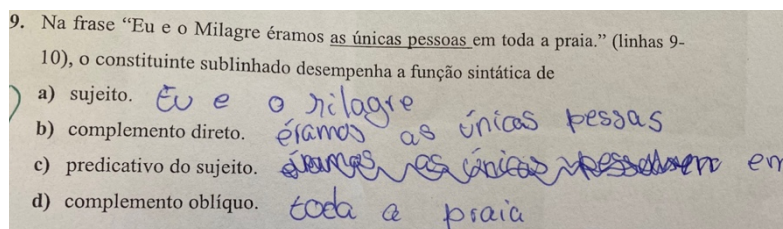 9. Na frase “Eu e o Milagre éramos as únicas pessoas em toda a praia.” (linhas 9-
10), o constituinte sublinhado desempenha a função sintática de
a) sujeito. Eu e o Milagre
b) complemento direto. éramos as únicas pessas
c) predicativo do sujeito. éramos as únicas em
d) complemento oblíquo. toda a praia